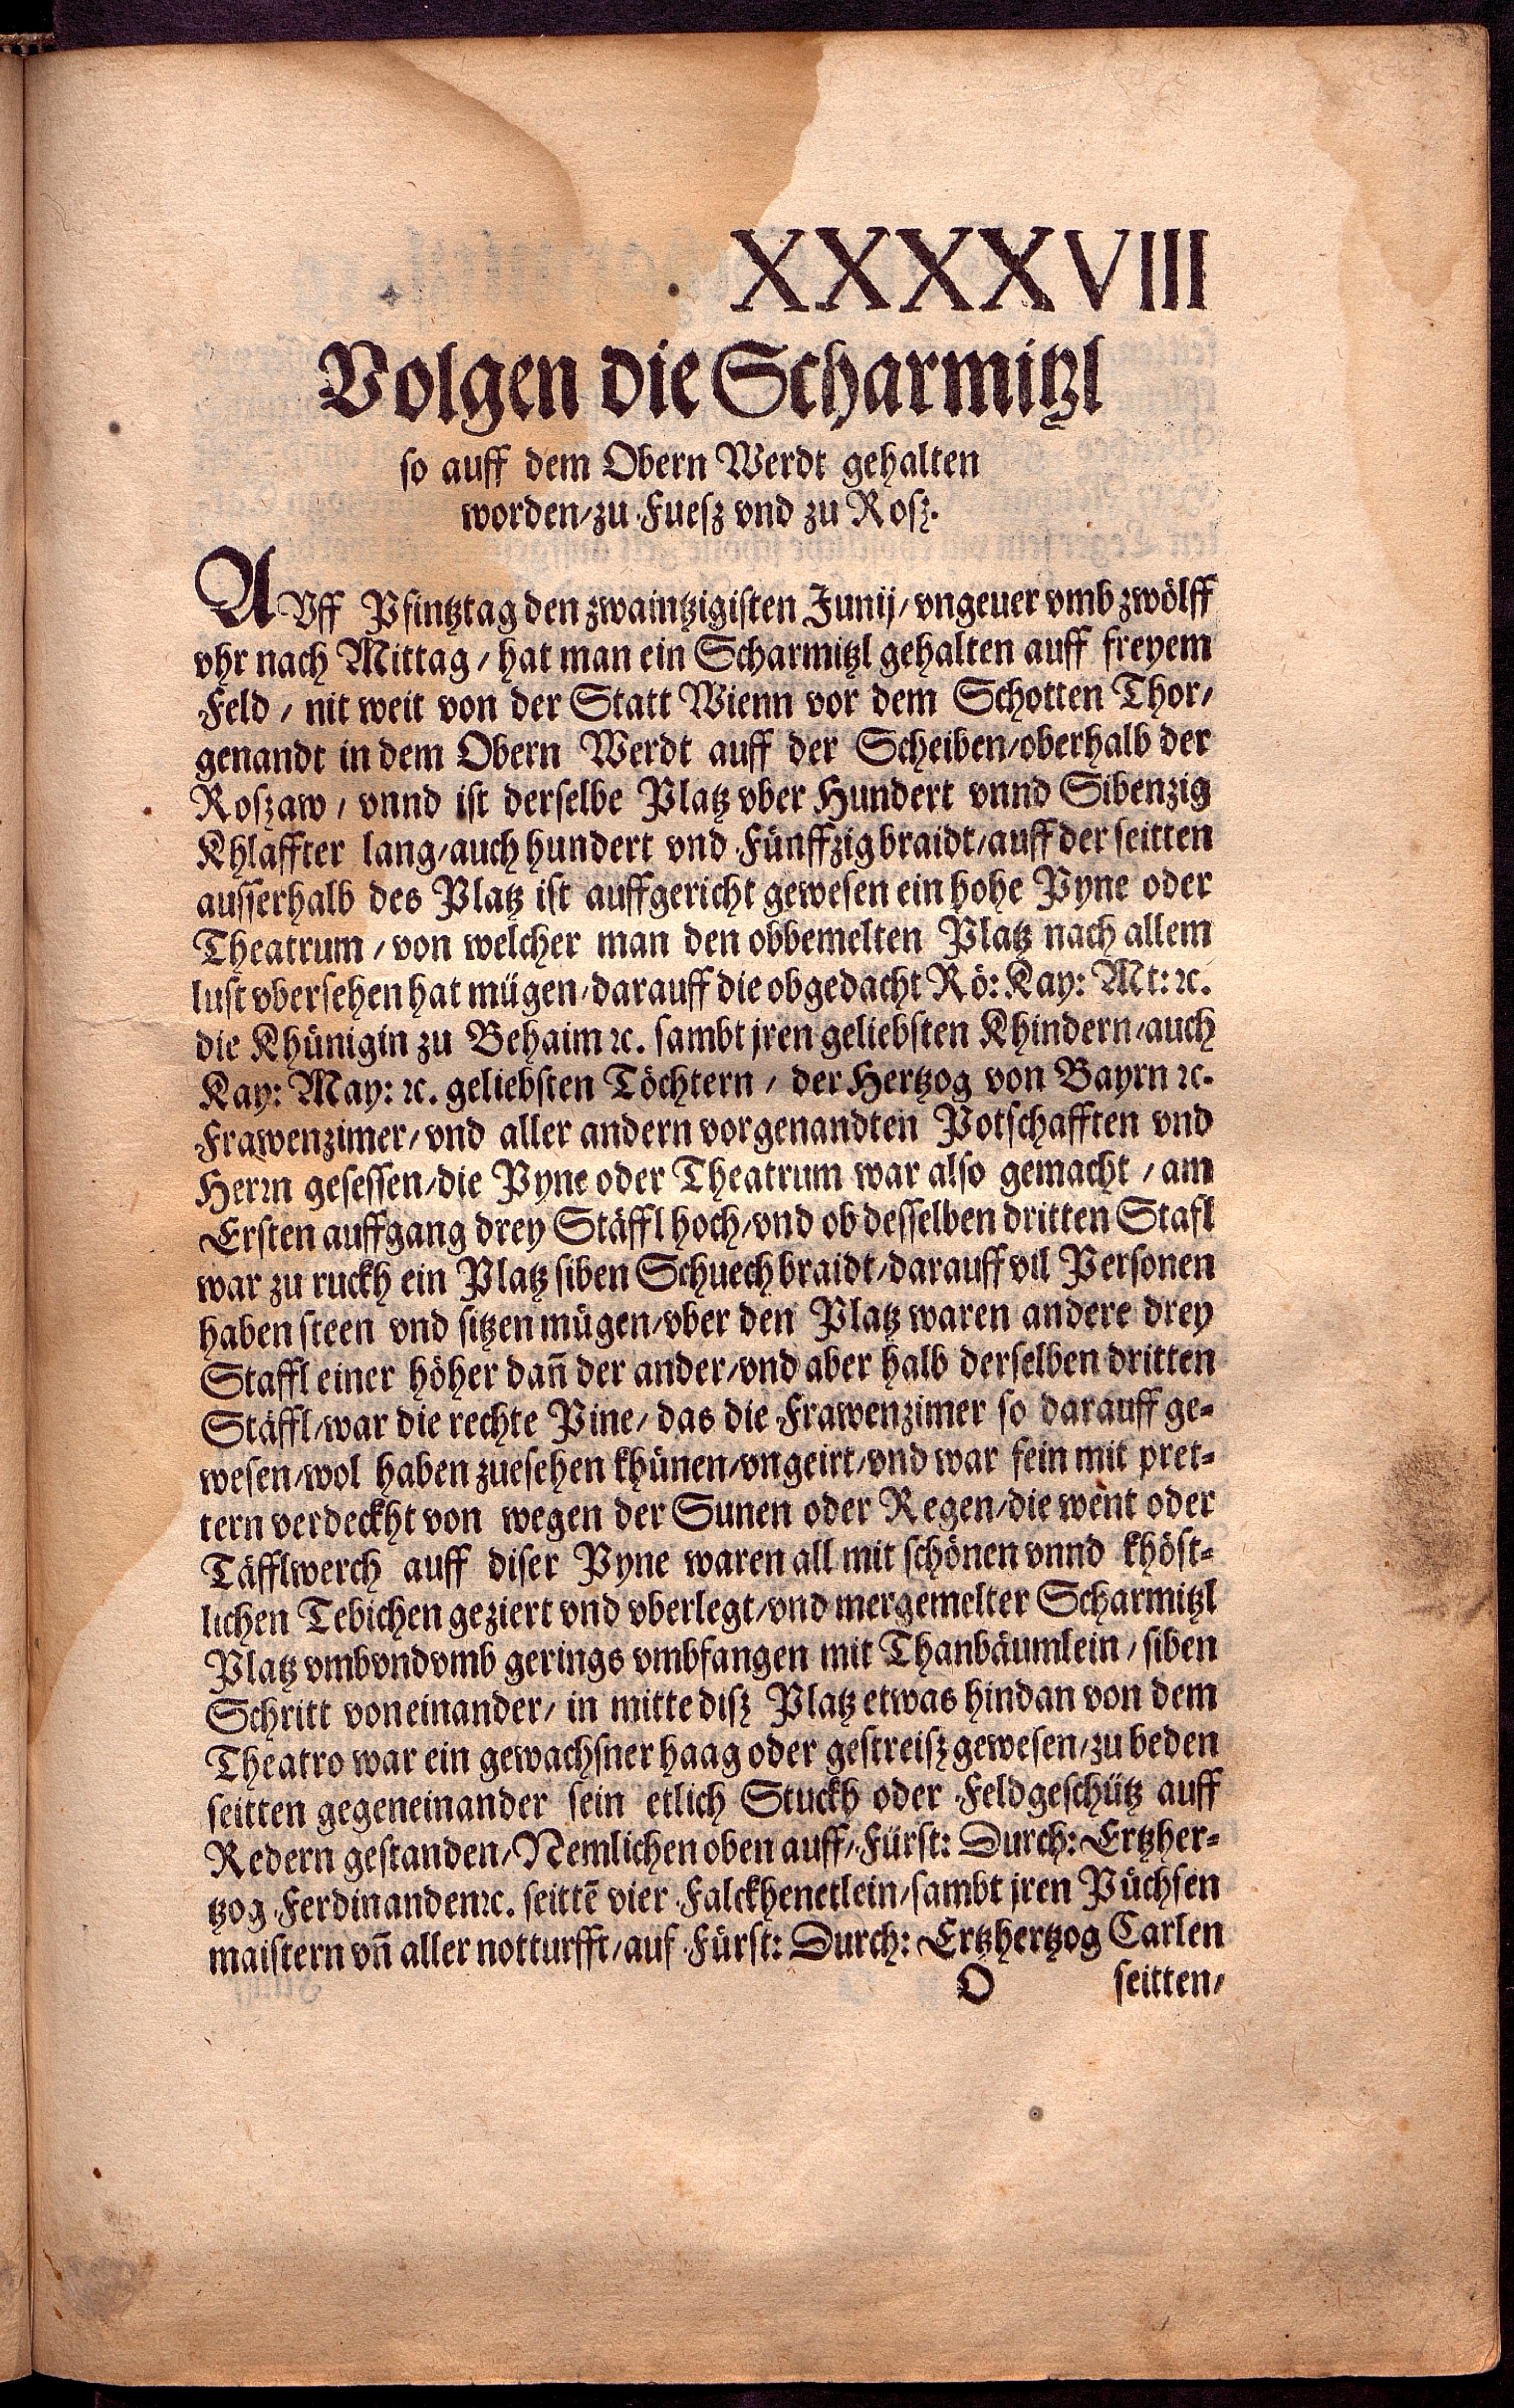 XXXXVIII
Volgen die Scharmitzl
so auff dem Obern Werdt gehalten
worden/zu Fuesz vnd zu Rosz.
AVff Pfintztag den zwaintzigisten Junij/vngeuer vmb zwölff
vhr nach Mittag/hat man ein Scharmitzl gehalten auff freyem
Feld/nit weit von der Statt Wienn vor dem Schotten Thor/
genandt in dem Obern Werdt auff der Scheiben/oberhalb der
Roszaw/vnnd ist derselbe Platz vber Hundert vnnd Sibenzig
Khlaffter lang/auch hundert vnd Fünffzig braidt/auff der seitten
ausserhalb des Platz ist auffgericht gewesen ein hohe Pyne oder
Theatrum/von welcher man den obbemelten Platz nach allem
lust vbersehen hat mügen/darauff die obgedacht Rö: Kay: Mt: ꝛc.
die Khünigin zu Behaim ꝛc. sambt jren geliebsten Khindern/auch
Kay: May: ꝛc. geliebsten Töchtern/der Hertzog von Bayrn ꝛc.
Frawenzimer/vnd aller andern vorgenandten Potschafften vnd
Herrn gesessen/die Pyne oder Theatrum war also gemacht/am
Ersten auffgang drey Stäffl hoch/vnd ob desselben dritten Stafl
war zu ruckh ein Platz siben Schuech braidt/darauff vil Personen
haben steen vnd sitzen mügen/vber den Platz waren andere drey
Staffl einer höher dañ der ander/vnd aber halb derselben dritten
Stäffl/war die rechte Pine/das die Frawenzimer so darauff ge-
wesen/wol haben zuesehen khünen/vngeirt/vnd war fein mit pret-
tern verdeckht von wegen der Sunen oder Regen/die went oder
Täfflwerch auff diser Pyne waren all mit schönen vnnd khöst-
lichen Tebichen geziert vnd vberlegt/vnd mergemelter Scharmitzl
Platz vmbvndvmb gerings vmbfangen mit Thanbäumlein/siben
Schritt voneinander/in mitte disz Platz etwas hindan von dem
Theatro war ein gewachsner haag oder gestreisz gewesen/zu beden
seitten gegeneinander sein etlich Stuckh oder Feldgeschütz auff
Redern gestanden/Nemlichen oben auff/Fürst: Durch: Ertzher-
tzog Ferdinanden ꝛc. seittē vier Falckhenetlein/sambt jren Püchsen
maistern vñ aller notturfft/auf Fürst: Durch: Ertzhertzog Carlen
O seitten/